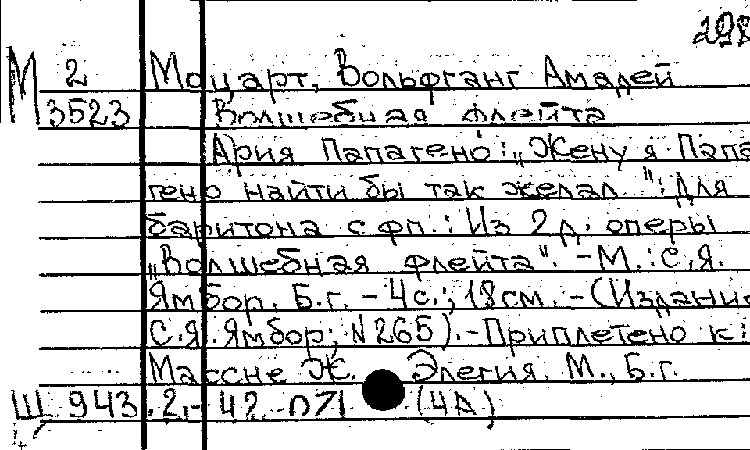 298
М 2 Моцарт, Вольфганг Амадей
3523 Волшебная флейта
Ария Папагено: „Жену я Папа
гено найти бы так желал...": Для
баритона с фп.: Из 2 д. оперы
„Волшебная флейта". - М.: С.Я.
Ямбор. Б.г. - 4с.; 18см. - (Издание
С.Я. Ямбор; N265). - Приплетено к:
Массне Ж. Элегия. М., Б.г.
Щ 943.2.-42-071 (4А)